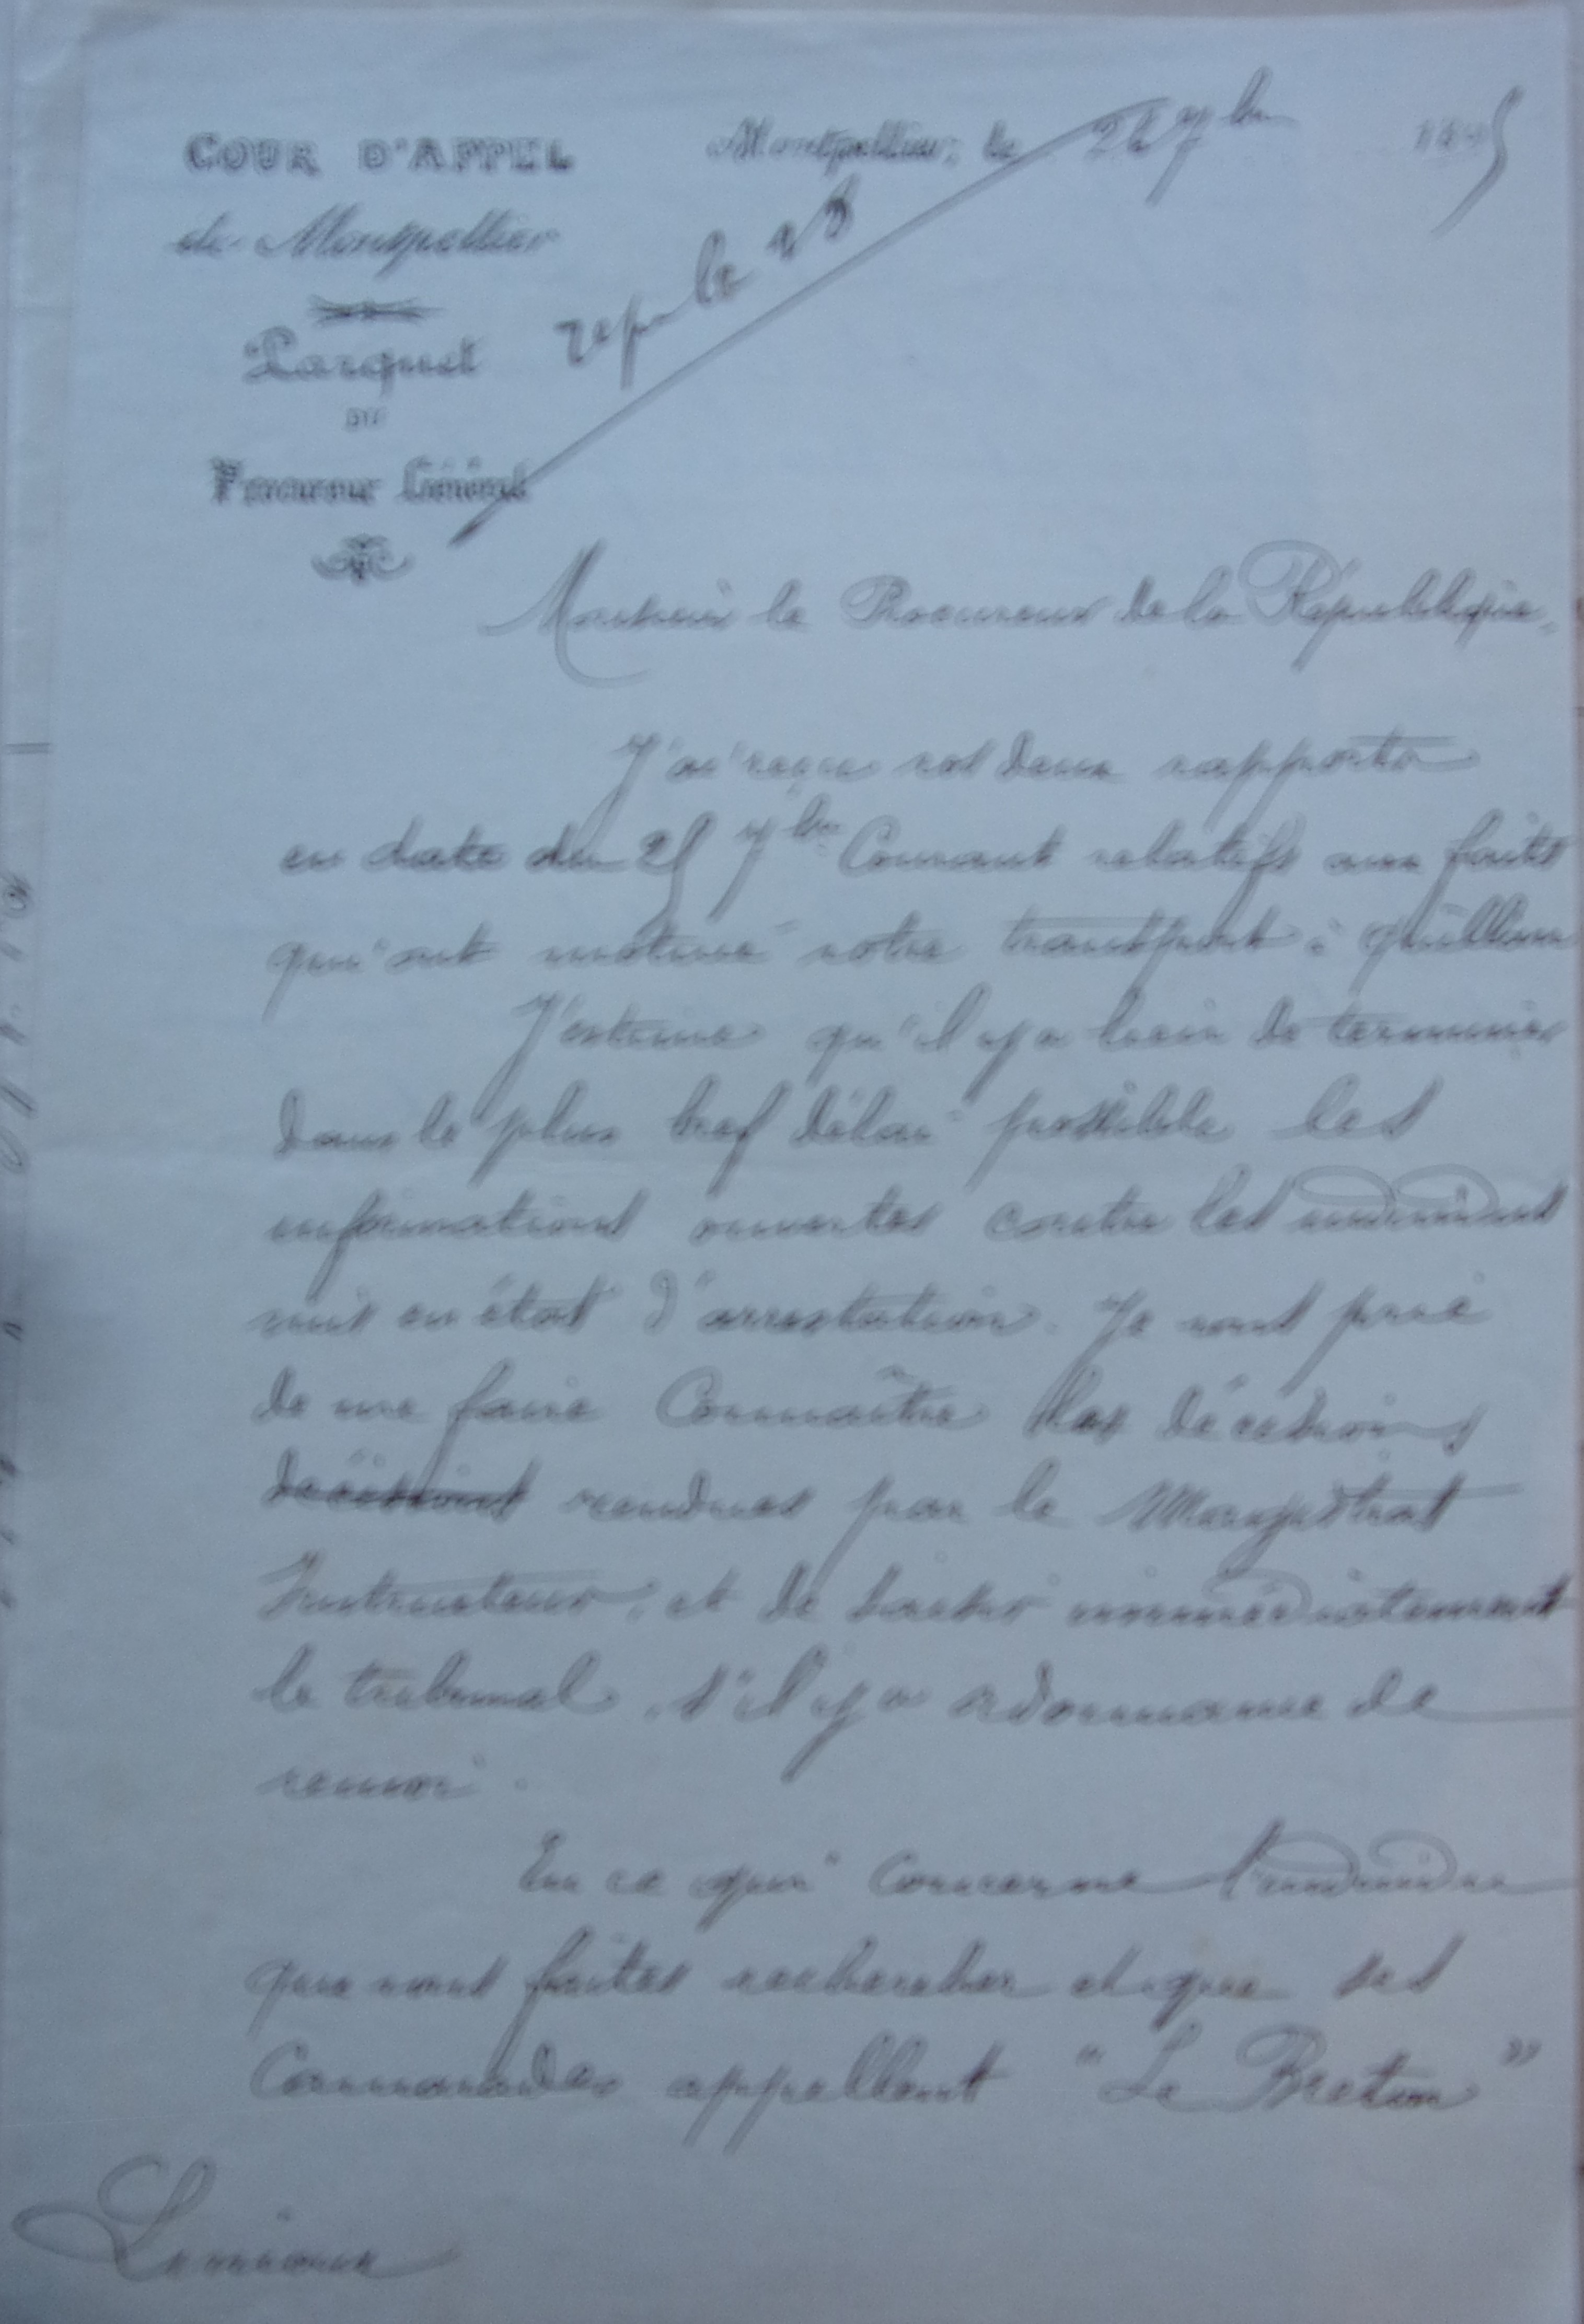 COUR D'APPEL
de Montpellier
Parquet
DU
Procureur Général
Montpellier, le 26 7bre 1895
le 28
Monsieur le Procureur de la République,
J'ai reçu vos deux rapports
en date du 25 7bre Courant relatifs aux faits
qui ont motivé votre transport à Quillan
J'estime qu'il y a lieu de terminer
dans le plus bref délai possible les
informations ouvertes contre les individus
mis en état d'arrestation. Je vous prie
de me faire Connaître les décisions
décisions rendues par le Magistrat
Instructeur, et de saisir immédiatement
le tribunal, s'il y a ordonnance de
renvoi.
En ce qui concerne l'individu
que vous faites rechercher et que ses
Camarades appellent "Le Breton"
Limoux